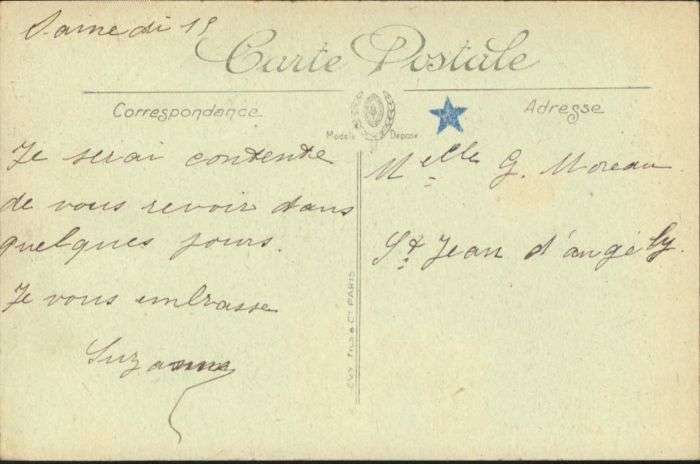 Samedi 15
Carte Postale
Correspondance
Adresse
Modèle Déposé
Je serai contente
de vous revoir dans
quelques jours.
Je vous embrasse
Suzanne
Melle G. Moreau
St Jean d'angély
& Cie PARIS